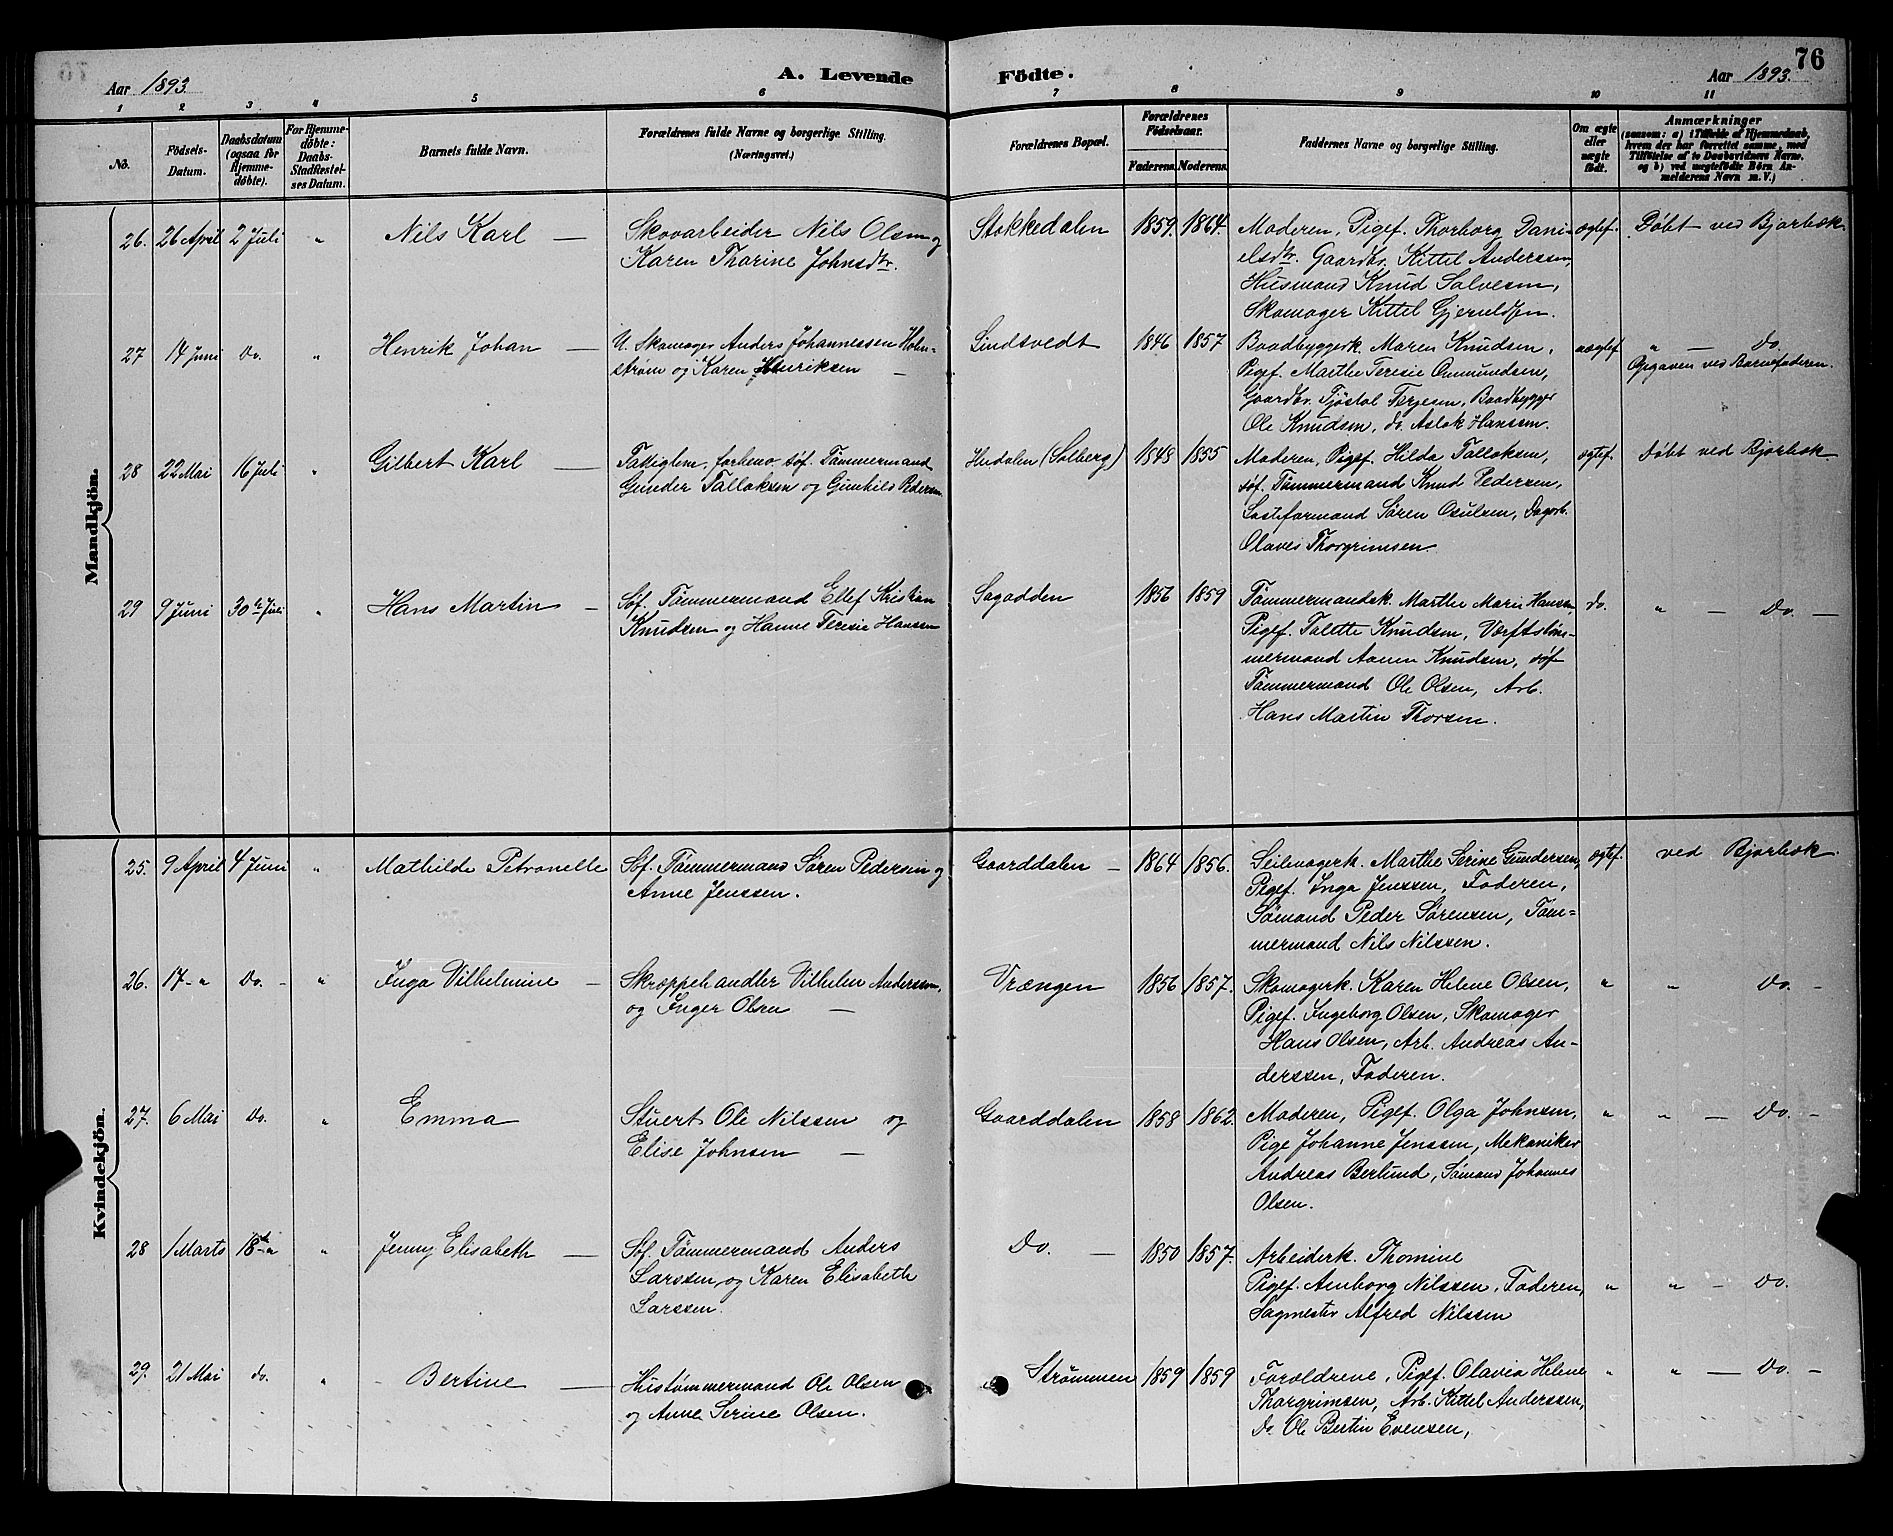 76
Aar 1893.
A. Levende Födte.
Aar 1893.
1 2 3. 4 5 6 7 8 9 10 11
No.
Födsels-
Datum.
Daabsdatum
(ogsaa for
Hjemme-
döbte).
For Hjemme-
döbte:
Daabs-
Stadfæstel-
ses Datum.
Barnets fulde Navn.
Forældrenes fulde Navne og borgerlige Stilling.
(Næringsvei.)
Forældrenes Bopæl.
Forældrenes
Födselsaar.
Faderens. Moderens.
Faddernes Navne og borgerlige Stilling.
Om ægte
eller
uægte
födt.
Anmærkninger
(saasom: a) i Tilfælde af Hjemmedaab,
hvem der har forrettet samme, med
Tilföielse af to Daabsvidners Navne,
og b) ved uægtefödte Börn An-
melderens Navn m. V.)
Mandkjön.
26. 26 April 2 Juli " Nils Karl —
Skovarbeider Nils Olsen og
Karen Thorine Johnsdtr.
Stokkedalen 1859. 1864.
Moderen, Pigef. Thorborg Dani-
elsdtr. Gaardbr. Kittel Anderssen,
Husmand Knud Salvesen,
Skomager Kittel Gjeruldsen.
ægtef. Döbt ved Bjorbæk.
27 14 Juni Do. " Henrik Johan —
U. Skomager Anders Johannessen Holm-
ström og Karen Henriksen —
Lindtvedt 1846 1857
Baadbyggerk. Maren Knudsen,
Pigef. Marthe Teresie Omundsen,
Gaardbr. Tjöstol Terjesen, Baadbygger
Ole Knudsen, do. Aslak Hanssen.
uægtef " — Do.
Opgaven ved Barnefaderen.
28 22 Mai 16 Juli " Gilbert Karl —
Fattiglem, forhenv. söf. Tömmermand
Gunder Tallaksen og Gunhild Pedersen
Hedalen (Solberg) 1848 1855
Moderen, Pigef. Hilda Tallaksen,
söf. Tömmermand Knud Pedersen,
Lasteformand Sören Osulsen, Dagarb.
Olaves Thorgrimsen.
ægtef. Döbt ved Bjorbæk.
29 9 Juni 30te Juli " Hans Martin —
Söf. Tömmermand Ellef Kristian
Knudsen og Hanne Teresie Hanssen
Sagodden 1856 1859
Tömmermandsk. Marthe Marie Hanssen
Pigef. Talette Knudsen, Værftstöm-
mermand Aanen Knudsen, söf
Tömmermand Ole Olsen, Arb.
Hans Martin Thorsen.
Do. " — Do. —
Kvindekjön.
25. 9 April 4 Juni " Mathilde Petronelle
Söf. Tömmermand Sören Pedersen og
Anne Jenssen.
Gaarddalen — 1864 1856.
Seilmagerk. Marthe Serine Gundersen,
Pigef. Inga Jenssen, Faderen,
Sömand Peder Sörensen, Töm-
mermand Nils Nilssen.
ægtef. ved Bjorbæk.
26. 17 - " Do. - " Inga Vilhelmine —
Skræppehandler Vilhelm Anderssen,
og Inger Olsen —
Vrængen 1856 1857.
Skomagerk. Karen Helene Olsen,
Pigef. Ingeborg Olsen, Skomager
Hans Olsen, Arb. Andreas An-
derssen, Faderen.
" " Do. —
27. 6 Mai Do. " Emma
Stuert Ole Nilssen og
Elise Johnsen —
Gaarddalen 1858 1862.
Moderen, Pigef. Olga Johnsen,
Pige Johanne Jenssen, Mekaniker
Andreas Berlund, Sömand Johannes
Olsen.
" " — Do. —
28 1 Marts 18de - " " Jenny Elisabeth —
Söf. Tömmermand Anders
Larssen og Karen Elisabeth
Larssen.
Do. — 1850 1857.
Arbeiderk. Thomine
Pigef. Amborg Nilssen, Faderen,
Sagmester Alfred Nilssen
" " — Do.
29. 21 Mai do. " - Bertine —
Hustömmermand Ole Olsen
og Anne Serine Olsen.
Strömmen 1859 1859
Forældrene, Pigef. Olavia Helene
Thorgrimsen, Arb. Kittel Anderssen,
Do. Ole Bertin Evensen,
" " — Do. —